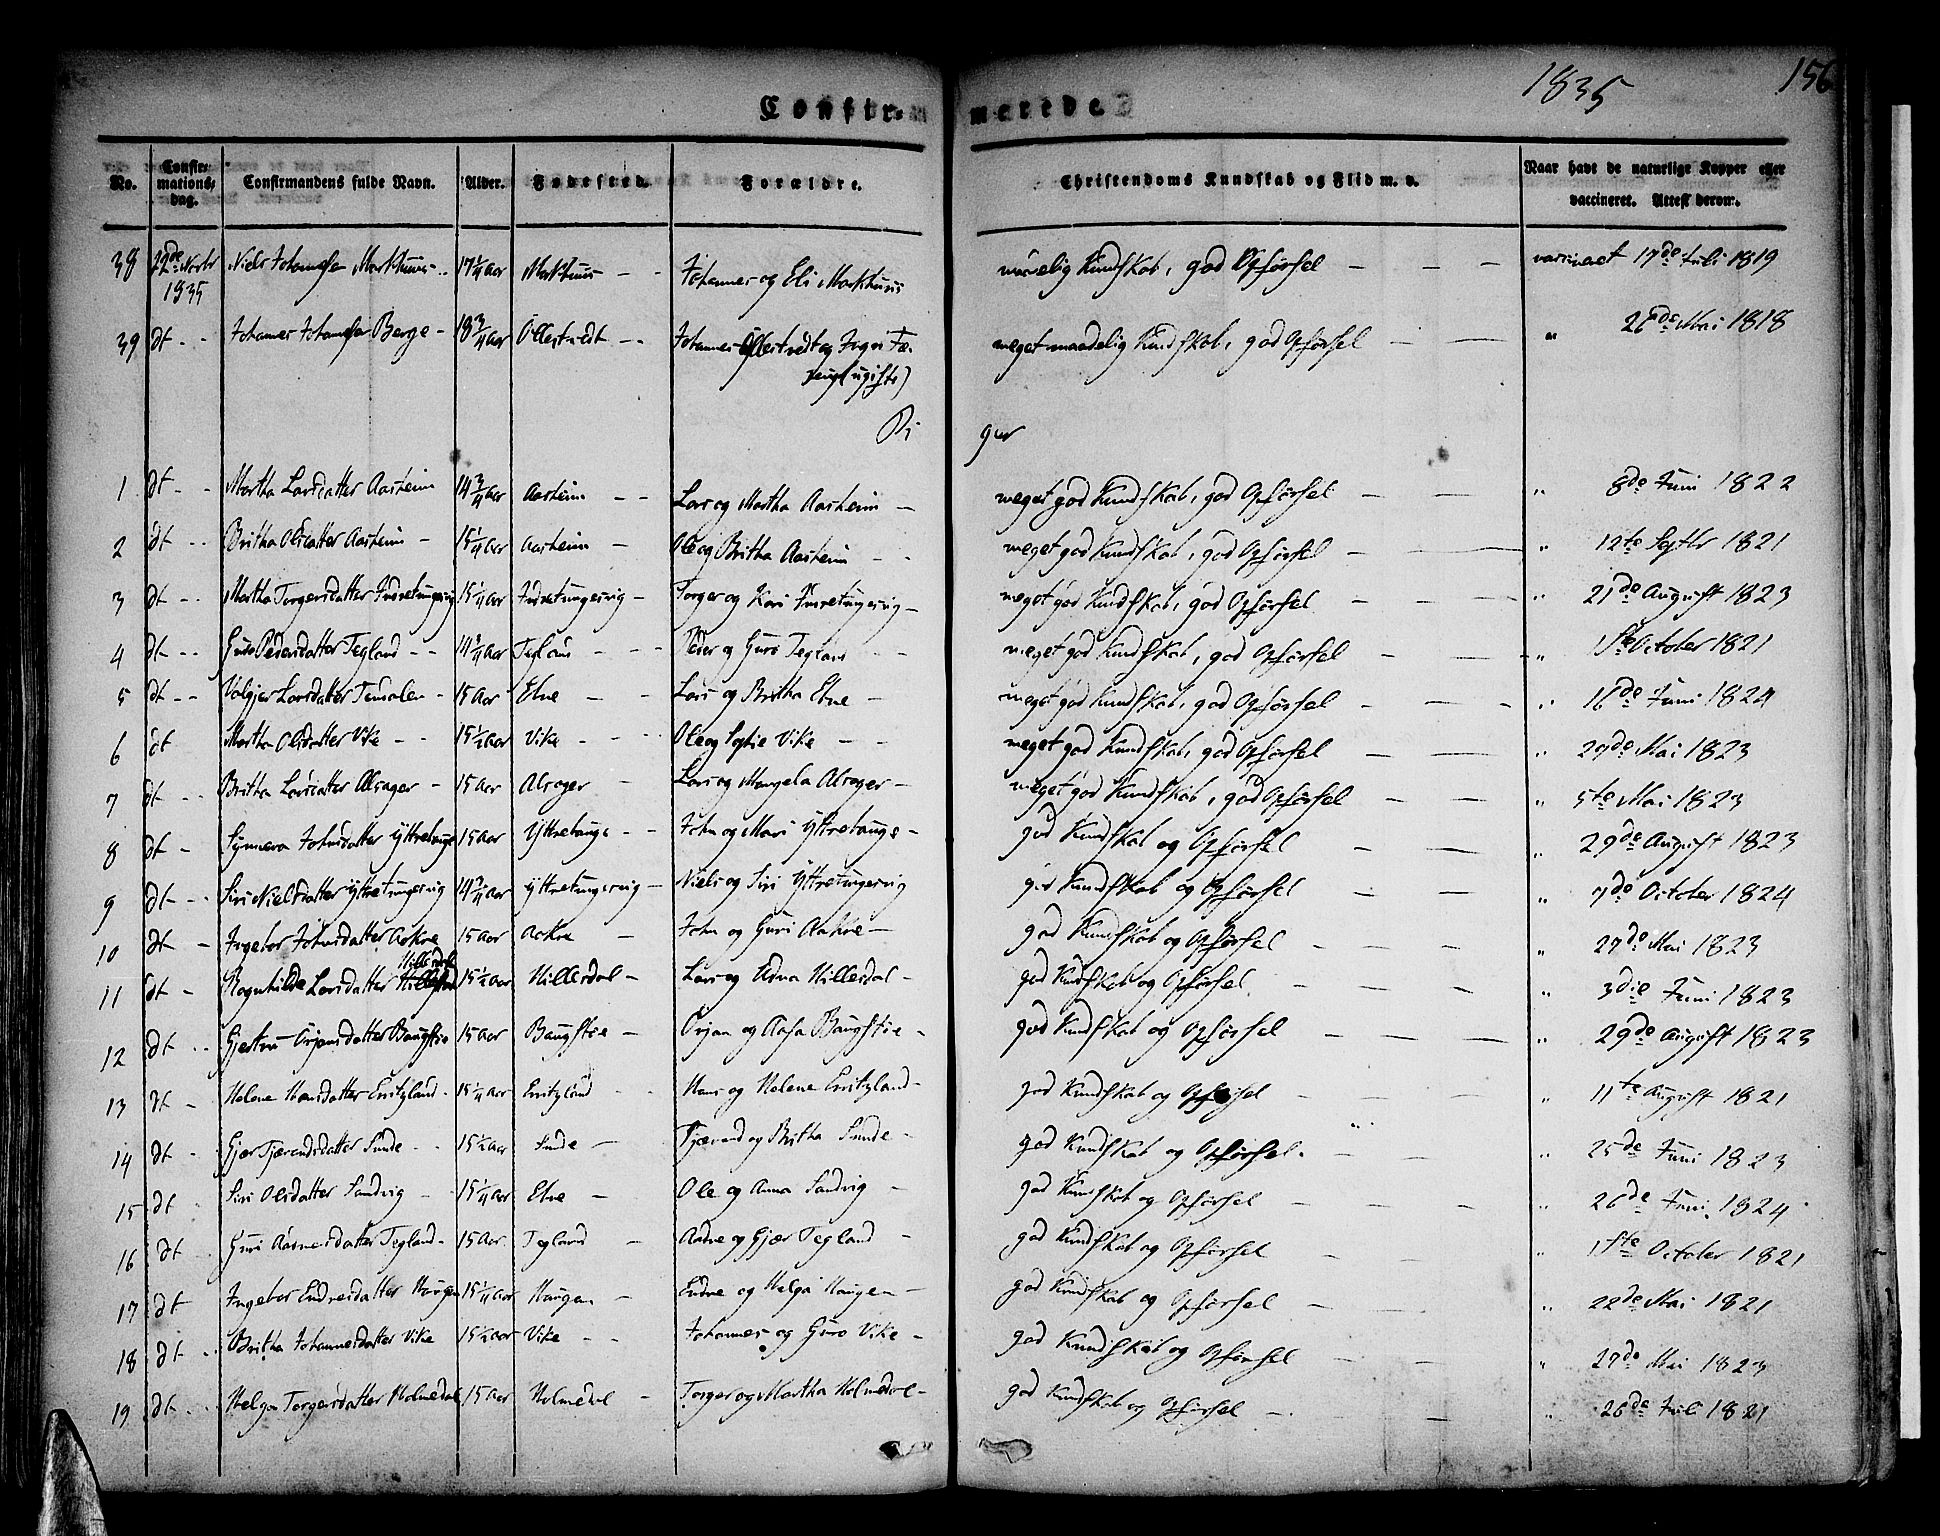 1835
156
Confir= merede
No. | Confirmations= dag. | Confirmandens fulde Navn. | Alder. | Fødested. | Forældre. | Christendoms Kundskab og Flid m. v. | Naar havt de naturlige Kopper eller vaccineret. Attest derom.
38 | 22de Novbr 1835 | Niels Johannesen Markhuus | 17 1/4 Aar | Markhuus | Johannes og Eli Markhuus | maadelig Kundskab, god Opførsel | vaccineret 17de Juli 1819
39 | dt | Johannes Johannesen Berge | 18 3/4 Aar | Øllestvedt | Johannes Øllestvedt og Inger (ugifte) | meget maadelig Kundskab, god Opførsel | " Mai 1818
Pi ger
1 | dt | Martha Larsdatter Aarheim | 14 3/4 Aar | Aarheim | Lars og Martha Aarheim | meget god Kundskab, god Opførsel | " 8de Juni 1822
2 | dt | Britha Olsdatter Aarheim | 15 1/4 Aar | Aarheim | Ole og Britha Aarheim | meget god Kundskab, god Opførsel | " 12te Septbr 1821
3 | dt | Martha Torgersdatter Indretungesvig | 15 1/4 Aar | Indretungesvig | Torger og Kari Indretungesvig | meget god Kundskab, god Opførsel | " 21de August 1823
4 | dt | Guro Pedersdatter Tegland | 14 3/4 Aar | Tegland | Peder og Guro Tegland | meget god Kundskab, god Opførsel | " 1ste October 1821
5 | dt | Valgjer Larsdatter | 15 Aar | Etne | Lars og Britha Etne | meget god Kundskab, god Opførsel | " 16de Juni 1824
6 | dt | Martha Olsdatter Vike | 15 1/2 Aar | Vike | Ole og Sophie Vike | meget god Kundskab, god Opførsel | " 27de Mai 1823
7 | dt | Britha Larsdatter Alsager | 15 Aar | Alsager | Lars og Mangela Alsager | meget god Kundskab, god Opførsel | " 5te Mai 1823
8 | dt | Synneva Johnsdatter Yttretunge | 15 Aar | Yttretunge | John og Mari Yttretunge | god Kundskab og Opførsel | " 29de August 1823
9 | dt | Siri Nielsdatter Yttretungesvig | 14 3/4 Aar | Yttretungesvig | Niels og Siri Yttretungesvig | god Kundskab og Opførsel | " 7de October 1824
10 | dt | Ingebor Johnsdatter Aakre | 15 Aar | Aakre | John og Guri Aakre | god Kundskab og Opførsel | " 27de Mai 1823
11 | dt | Ragnhilde Larsdatter Hillesdal | 15 1/2 Aar | Hillesdal | Lars og Edna Hillesdal | god Kundskab og Opførsel | " 3die Juni 1823
12 | dt | Gjertru Ørjansdatter Baugstøe | 15 Aar | Baugstøe | Ørjan og Aasa Baugstøe | god Kundskab og Opførsel | " 29de August 1823
13 | dt | Helene Hansdatter Enitzland | 15 1/4 Aar | Enitzland | Hans og Helene Enitzland | god Kundskab og Opførsel | " 11te August 1821
14 | dt | Gjær Tjærandsdatter Sunde | 15 1/2 Aar | Sunde | Tjærand og Britha Sunde | god Kundskab og Opførsel | " 25de Juni 1823
15 | dt | Siri Olsdatter Sandvig | 15 1/4 Aar | Etne | Ole og Anna Sandvig | god Kundskab og Opførsel | " 26de Juni 1824
16 | dt | Guri Aadnesdatter Tegland | 15 Aar | Tegland | Aadne og Gjær Tegland | god Kundskab og Opførsel | " 1ste October 1821
17 | dt | Ingebor Endresdatter Haugen | 15 1/4 Aar | Haugen | Endre og Helga Haugen | god Kundskab og Opførsel | " 22de Mai 1821
18 | dt | Britha Johannesdatter Vike | 15 1/2 Aar | Vike | Johannes og Guro Vike | god Kundskab og Opførsel | " 27de Mai 1823
19 | dt | Helga Torgersdatter Holmedal | 15 Aar | Holmedal | Torger og Martha Holmedal | god Kundskab og Opførsel | " 26de Juli 1821